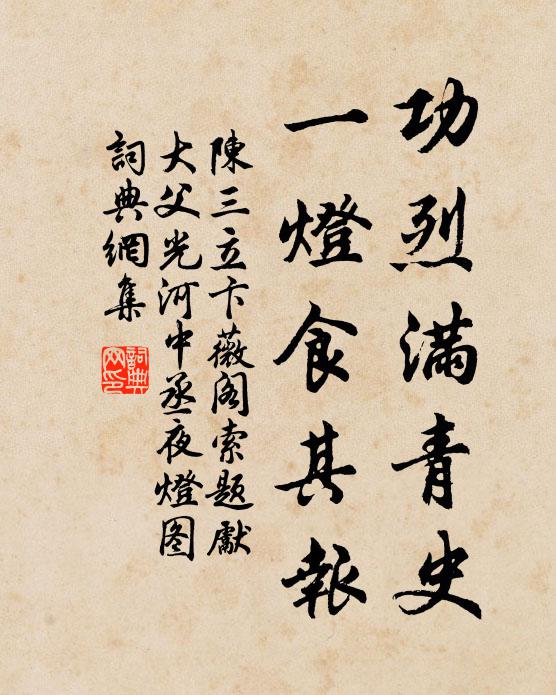 功烈滿青史
一燈食其報
陳三立卞薇閣索題獻
大父光河中丞夜燈图
詞典網集
詞典
网印